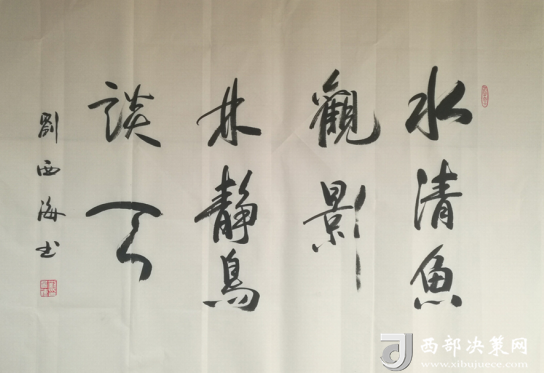 水清魚
觀影
林靜鳥
談天
劉西海书
西部决策网
www.xibujuece.com